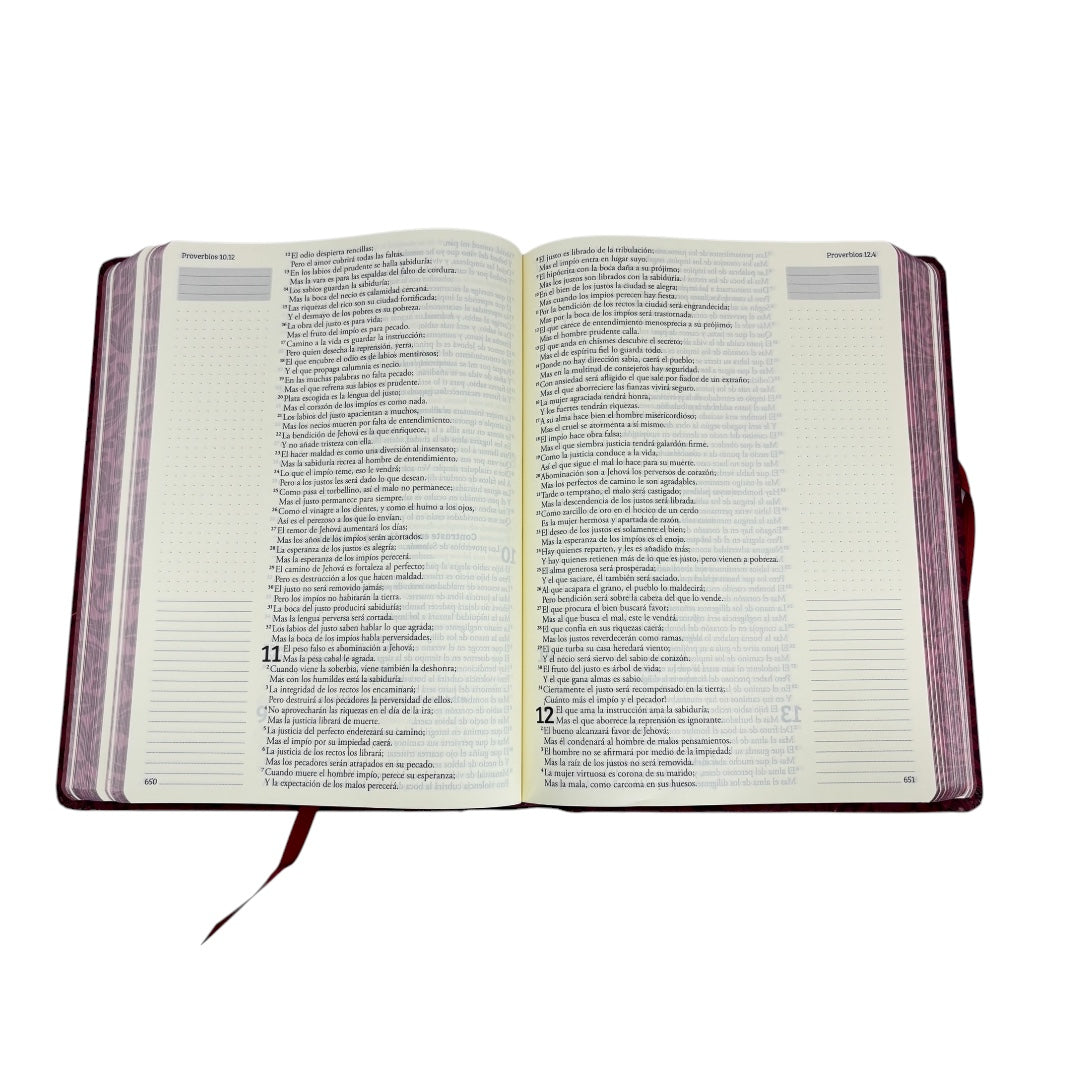 Proverbios 10.12
12 El odio despierta rencillas;
Pero el amor cubrirá todas las faltas.
13 En los labios del prudente se halla sabiduría;
Mas la vara es para las espaldas del falto de cordura.
14 Los sabios guardan la sabiduría;
Mas la boca del necio es calamidad cercana.
15 Las riquezas del rico son su ciudad fortificada;
Y el desmayo de los pobres es su pobreza.
16 La obra del justo es para vida;
Mas el fruto del impío es para pecado.
17 Camino a la vida es guardar la instrucción;
Pero quien desecha la reprensión, yerra.
18 El que encubre el odio es de labios mentirosos;
Y el que propaga calumnia es necio.
19 En las muchas palabras no falta pecado;
Mas el que refrena sus labios es prudente.
20 Plata escogida es la lengua del justo;
Mas el corazón de los impíos es como nada.
21 Los labios del justo apacientan a muchos,
Mas los necios mueren por falta de entendimiento.
22 La bendición de Jehová es la que enriquece,
Y no añade tristeza con ella.
23 El hacer maldad es como una diversión al insensato;
Mas la sabiduría recrea al hombre de entendimiento.
24 Lo que el impío teme, eso le vendrá;
Pero a los justos les será dado lo que desean.
25 Como pasa el torbellino, así el malo no permanece;
Mas el justo permanece para siempre.
26 Como el vinagre a los dientes, y como el humo a los ojos,
Así es el perezoso a los que lo envían.
27 El temor de Jehová aumentará los días;
Mas los años de los impíos serán acortados.
28 La esperanza de los justos es alegría;
Mas la esperanza de los impíos perecerá.
29 El camino de Jehová es fortaleza al perfecto;
Pero es destrucción a los que hacen maldad.
30 El justo no será removido jamás;
Pero los impíos no habitarán la tierra.
31 La boca del justo producirá sabiduría;
Mas la lengua perversa será cortada.
32 Los labios del justo saben hablar lo que agrada;
Mas la boca de los impíos habla perversidades.
11 El peso falso es abominación a Jehová;
Mas la pesa cabal le agrada.
2 Cuando viene la soberbia, viene también la deshonra;
Mas con los humildes está la sabiduría.
3 La integridad de los rectos los encaminará;
Pero destruirá a los pecadores la perversidad de ellos.
4 No aprovecharán las riquezas en el día de la ira;
Mas la justicia librará de muerte.
5 La justicia del perfecto enderezará su camino;
Mas el impío por su impiedad caerá.
6 La justicia de los rectos los librará;
Mas los pecadores serán atrapados en su pecado.
7 Cuando muere el hombre impío, perece su esperanza;
Y la expectación de los malos perecerá.
650
Proverbios 12.4
8 El justo es librado de la tribulación;
Mas el impío entra en lugar suyo.
9 El hipócrita con la boca daña a su prójimo;
Mas los justos son librados con la sabiduría.
10 En el bien de los justos la ciudad se alegra;
Mas cuando los impíos perecen hay fiesta.
11 Por la bendición de los rectos la ciudad será engrandecida;
Mas por la boca de los impíos será trastornada.
12 El que carece de entendimiento menosprecia a su prójimo;
Mas el hombre prudente calla.
13 El que anda en chismes descubre el secreto;
Mas el de espíritu fiel lo guarda todo.
14 Donde no hay dirección sabia, caerá el pueblo;
Mas en la multitud de consejeros hay seguridad.
15 Con ansiedad será afligido el que sale por fiador de un extraño;
Mas el que aborreciere las fianzas vivirá seguro.
16 La mujer agraciada tendrá honra,
Y los fuertes tendrán riquezas.
17 A su alma hace bien el hombre misericordioso;
Mas el cruel se atormenta a sí mismo.
18 El impío hace obra falsa;
Mas el que siembra justicia tendrá galardón firme.
19 Como la justicia conduce a la vida,
Así el que sigue el mal lo hace para su muerte.
20 Abominación son a Jehová los perversos de corazón;
Mas los perfectos de camino le son agradables.
21 Tarde o temprano, el malo será castigado;
Mas la descendencia de los justos será librada.
22 Como zarcillo de oro en el hocico de un cerdo
Es la mujer hermosa y apartada de razón.
23 El deseo de los justos es solamente el bien;
Mas la esperanza de los impíos es el enojo.
24 Hay quienes reparten, y les es añadido más;
Y hay quienes retienen más de lo que es justo, pero vienen a pobreza.
25 El alma generosa será prosperada;
Y el que saciare, él también será saciado.
26 Al que acapara el grano, el pueblo lo maldecirá;
Pero bendición será sobre la cabeza del que lo vende.
27 El que procura el bien buscará favor;
Mas al que busca el mal, este le vendrá.
28 El que confía en sus riquezas caerá;
Mas los justos reverdecerán como ramas.
29 El que turba su casa heredará viento;
Y el necio será siervo del sabio de corazón.
30 El fruto del justo es árbol de vida;
Y el que gana almas es sabio.
31 Ciertamente el justo será recompensado en la tierra;
¡Cuánto más el impío y el pecador!
12 El que ama la instrucción ama la sabiduría;
Mas el que aborrece la reprensión es ignorante.
2 El bueno alcanzará favor de Jehová;
Mas él condenará al hombre de malos pensamientos.
3 El hombre no se afirmará por medio de la impiedad;
Mas la raíz de los justos no será removida.
4 La mujer virtuosa es corona de su marido;
Mas la mala, como carcoma en sus huesos.
651